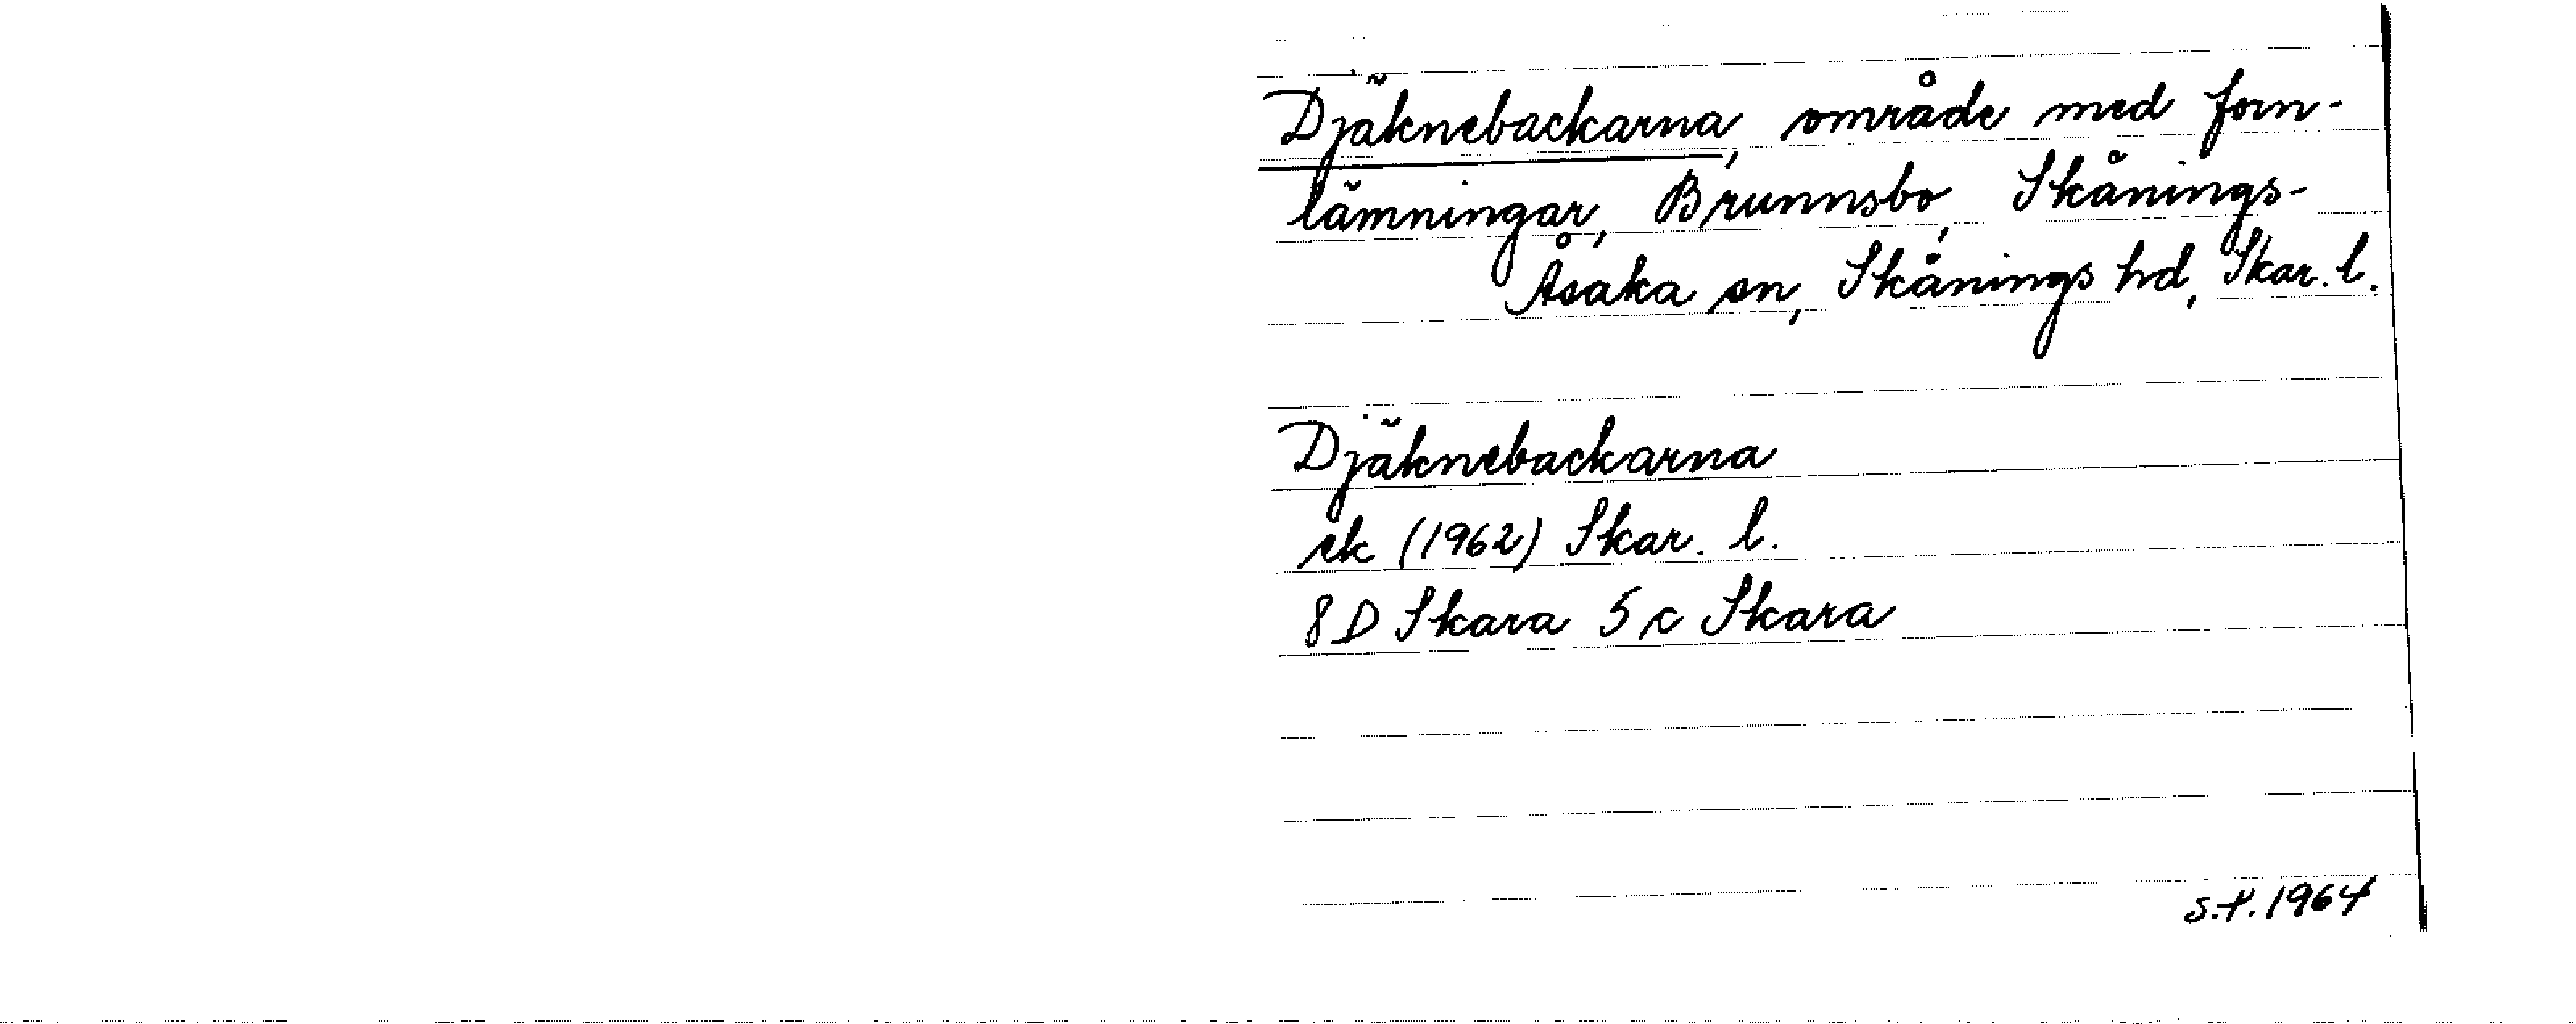 Djäknebackarna, område med forn-
lämningar, Brunnsbo, Skånings-
Åsaka sn, Skånings hd, Skar. l.
Djäknebackarna
ek (1962) Skar. l.
8 D Skara 5 c Skara
s.f. 1964